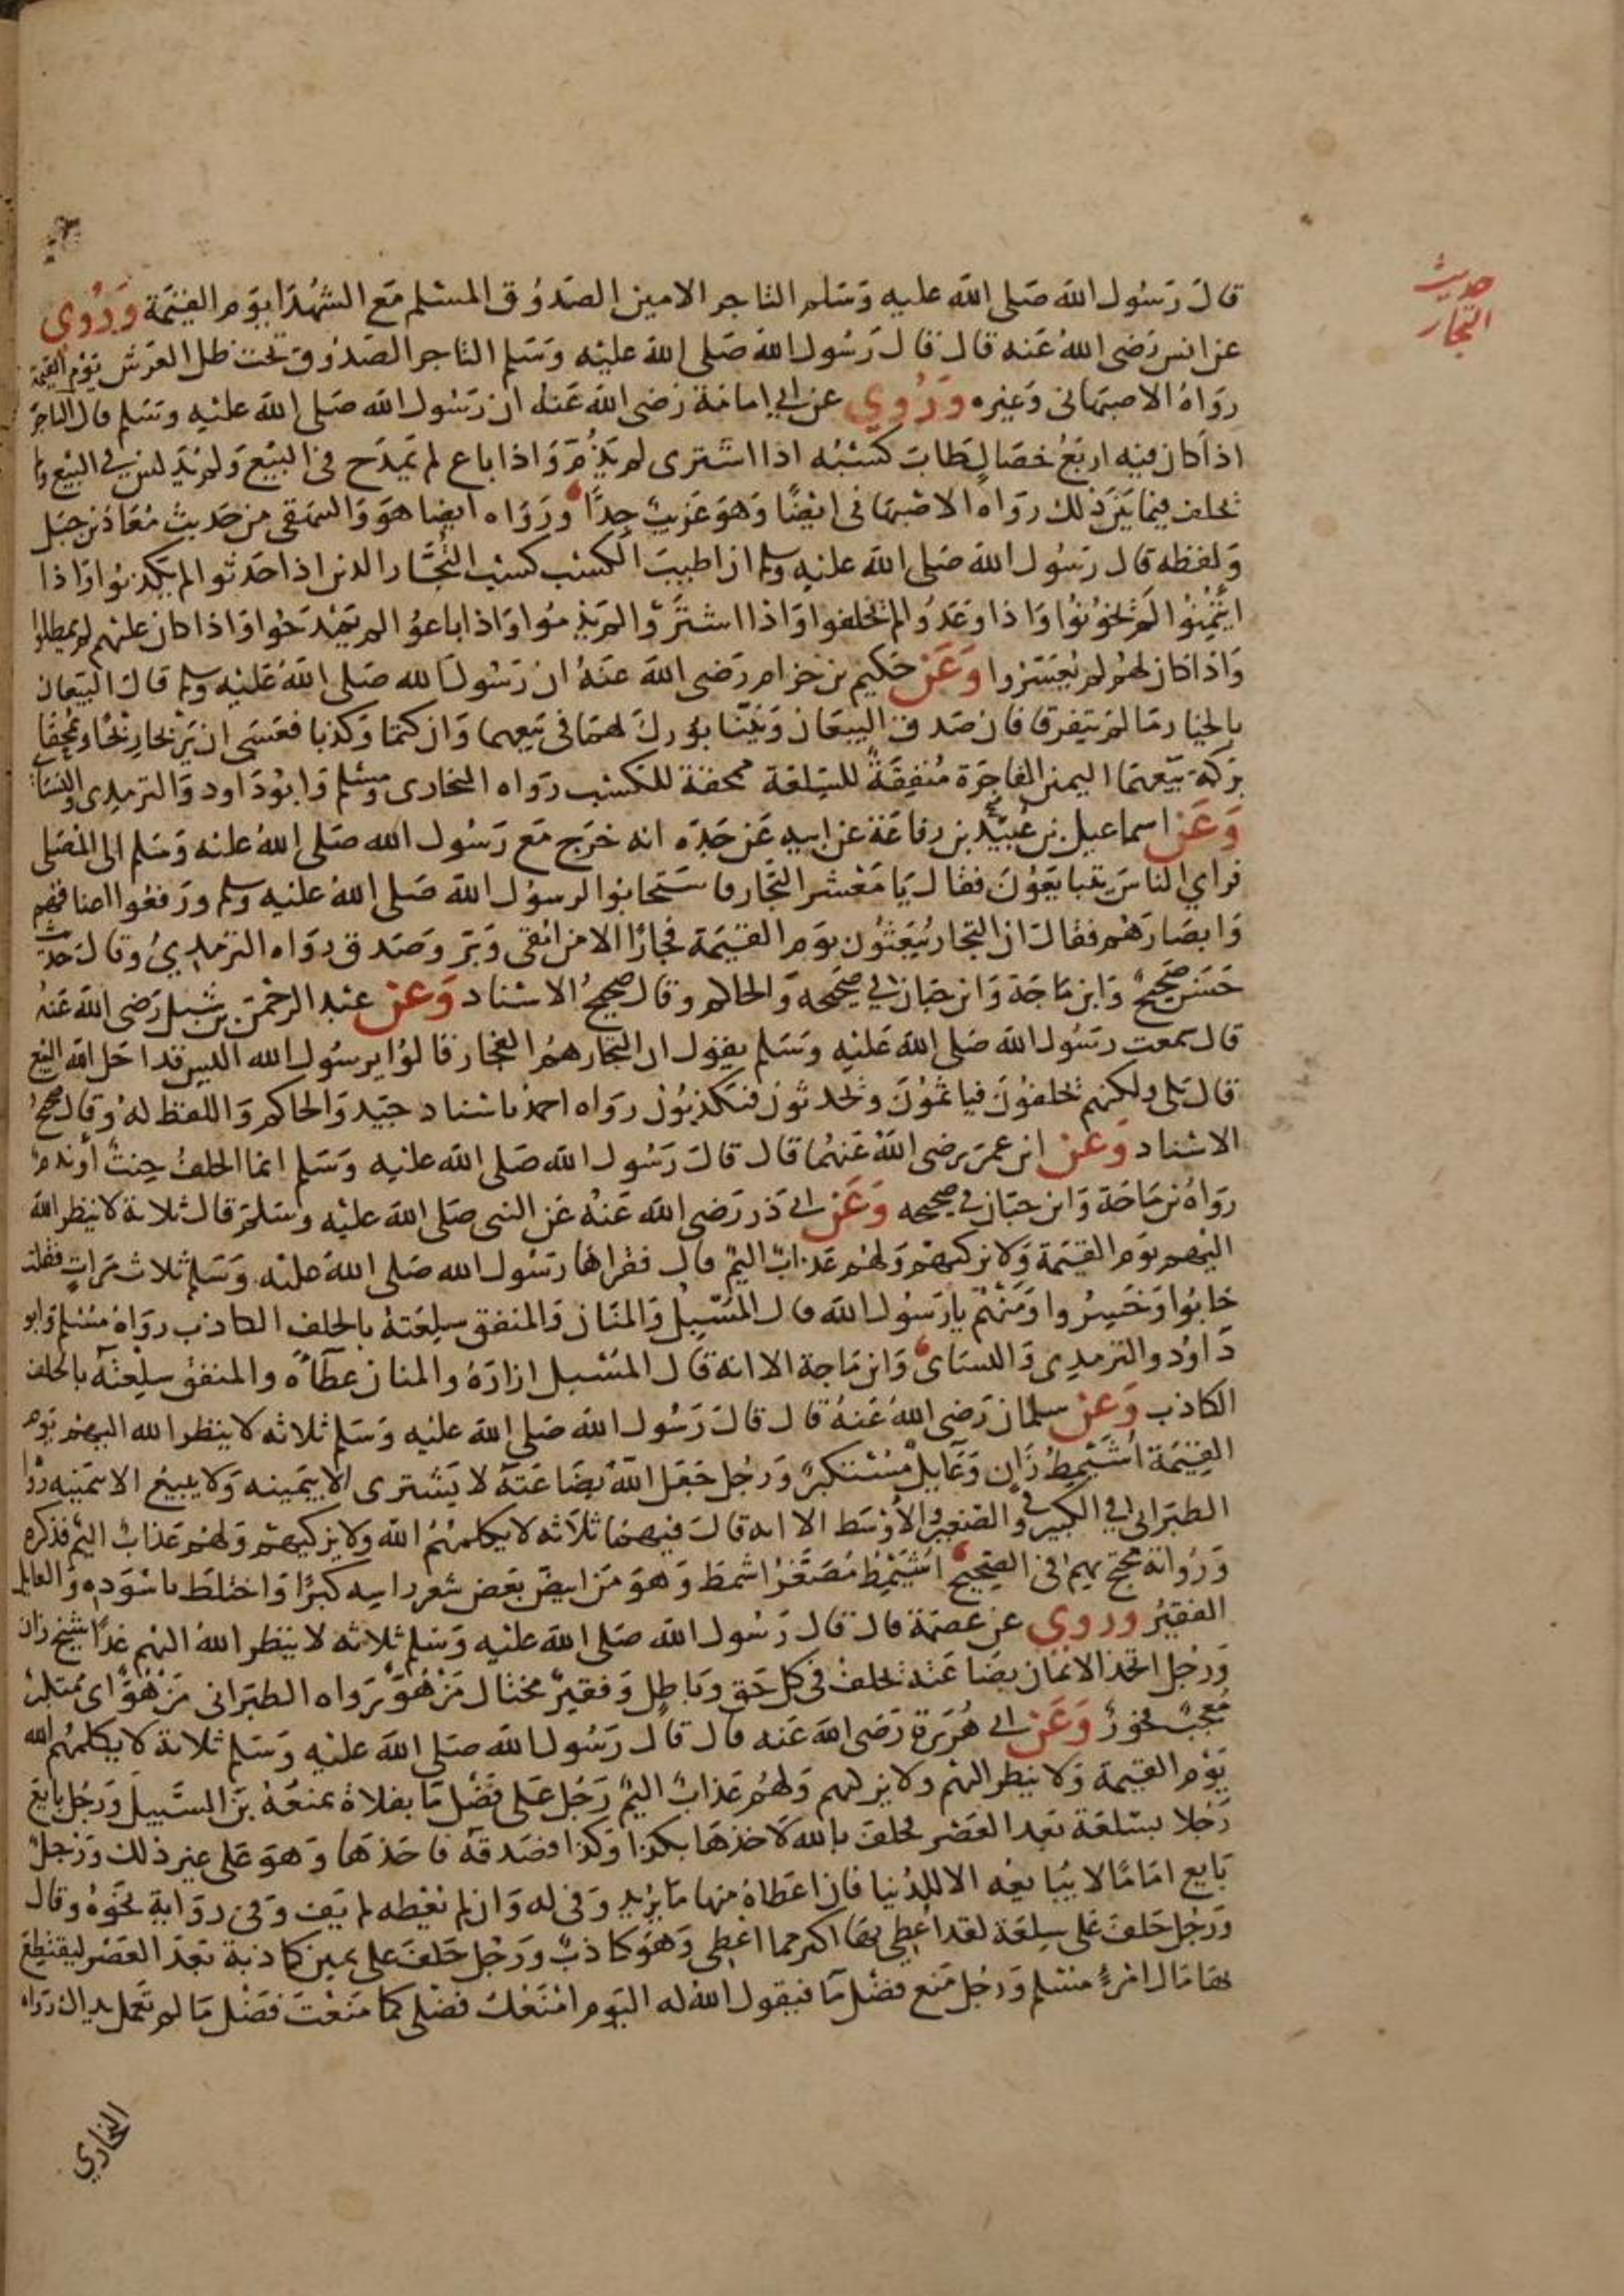 حديث
التجار
قال رسول الله صلى الله عليه وسلم التاجر الامين الصدوق المسلم مع الشهدا يوم القيمة وروي
عن انس رضى الله عنه قال قال رسول الله صلى الله عليه وسلم التاجر الصدوق تحت ظل العرش يوم القيمة
رواه الاصبهانى وغيره وروي عن ابي امامة رضى الله عنه ان رسول الله صلى الله عليه وسلم قال ان التاجر
اذا كان فيه اربع خصال طاب كسبه اذا اشترى لم يذم واذا باع لم يمدح فى البيع ولم يدلس في البيع ولم
يحلف فيما بين ذلك رواه الاصبهانى ايضًا وهو غريب جدًا ورواه ايضا هو والبيهقى من حديث معاذ بن جبل
ولفظه قال رسول الله صلى الله عليه وسلم ان اطيب الكسب كسب التجار الذين اذا حدثوا لم يكذبوا واذا
ايتمنوا لم يخونوا واذا وعدوا لم يخلفوا واذا اشتروا لم يذموا واذا باعوا لم يمدحوا واذا كان عليهم لم يمطلوا
واذا كان لهم لم يعسروا وعن حكيم بن حزام رضى الله عنه ان رسول الله صلى الله عليه وسلم قال البيعان
بالخيار ما لم يتفرقا فان صدق البيعان وبينا بورك لهما فى بيعهما وان كتما وكذبا فعسى ان يربحا ربحًا ويمحقا
بركة بيعهما اليمين الفاجرة منفقة للسلعة ممحقة للكسب رواه البخارى ومسلم وابوداود والترمدى والنسا
وعن اسماعيل بن عبيد بن رفاعة عن ابيه عن جده انه خرج مع رسول الله صلى الله عليه وسلم الى المصلى
فراي الناس يتبايعون فقال يا معشر التجار فاستجابوا لرسول الله صلى الله عليه وسلم ورفعوا اعناقهم
وابصارهم فقال ان التجار يبعثون يوم القيمة فجارًا الا من اتقى وبر وصدق رواه الترمديُ وقال حديث
حسن صحيح وابن ماجة وابن حبان في صحيحه والحاكم وقال صحيح الاسناد وعن عبد الرحمن بن شبل رضى الله عنه
قال سمعت رسول الله صلى الله عليه وسلم يقول ان التجار هم الفجار قالوا يرسول الله اليس قد احل الله البيع
قال بلى ولكنهم يحلفون فياثمون ويحدثون فيكذبون رواه احمد باسناد جيد والحاكم واللفظ له وقال صحيح
الاسناد وعن ابن عمر رضى الله عنهما قال قال رسول الله صلى الله عليه وسلم انما الحلف حنث أو ندم
رواه بن ماجة وابن حبان في صحيحه وعن ابي ذر رضى الله عنه عن النبى صلى الله عليه وسلم قال ثلاثة لا ينظر الله
اليهم يوم القيمة ولا يزكيهم ولهم عذاب اليم قال فقراها رسول الله صلى الله عليه وسلم ثلاث مرات فقلت
خابوا وخسروا ومن هم يا رسول الله قال المسبل والمنان والمنفق سلعته بالحلف الكاذب رواه مسلم وابو
داود والترمدى والنساى وابن ماجة الا انه قال المسبل ازاره والمنان عطاه والمنفق سلعته بالحلف
الكاذب وعن سلمان رضى الله عنه قال قال رسول الله صلى الله عليه وسلم ثلاثه لا ينظر الله اليهم يوم
القيمة اشيمط زان وعايل مستكبر ورجل جعل الله بضاعته لا يشترى الا بيمينه ولا يبيع الا بيمينه رواه
الطبرانى في الكبير وفي الصغير والأوسط الا انه قال فيهما ثلاثه لا يكلمهم الله ولا يزكيهم ولهم عذاب اليم فذكره
ورواته محتج بهم فى الصحيح اشيمط مصغر اشمط وهو من ابيض بعض شعر راسه كبرًا واختلط باسوده والعايل
الفقير وروي عن عصمة قال قال رسول الله صلى الله عليه وسلم ثلاثه لا ينظر الله اليهم غدًا شيخ زان
ورجل اتخذ الايمان بضاعته يحلف فى كل حق وباطل وفقير مختال مزهو رواه الطبرانى مزهو اى متكبر
معجب فخور وعن ابي هريرة رضى الله عنه قال قال رسول الله صلى الله عليه وسلم ثلاثة لا يكلمهم الله
يوم القيمة ولا ينظر اليهم ولا يزكيهم ولهم عذاب اليم رجل على فضل ما بفلاة يمنعه بن السبيل ورجل بايع
رجلا بسلعة بعد العصر فحلف بالله لاخذها بكذا وكذا فصدقه فاخذها وهو على غير ذلك ورجل
بايع امامًا لا يبايعه الا للدنيا فان اعطاه منها ما يريد وفى له وان لم يعطه لم يف وفى رواية نحوه وقال
ورجل حلف على سلعة لقد اعطي بها اكثر مما اعطى وهو كاذب ورجل حلف على يمين كاذبة بعد العصر ليقتطع
بها مال امرء مسلم ورجل منع فضل ما فيقول الله له اليوم امنعك فضلى كما منعت فضل ما لم تعمل يداك رواه
البخاري